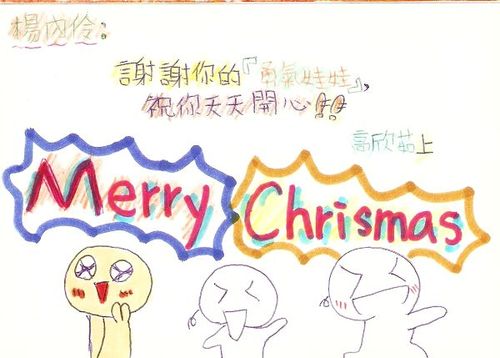 楊內伶:
謝謝你的『勇氣娃娃』,
祝你天天開心!!
欣茹上
Merry Chrismas